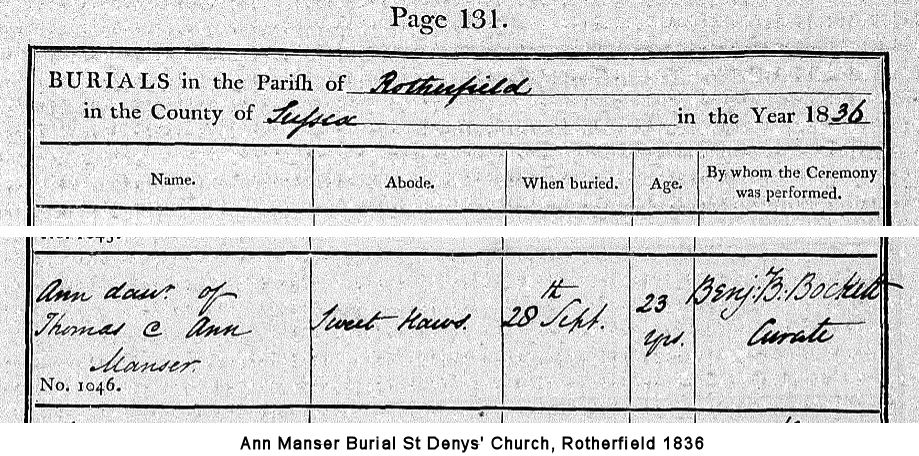 Page 131.
BURIALS in the Pariſh of Rotherfield
in the County of Suſsex in the Year 1836
Name. Abode. When buried. Age. By whom the Ceremony was performed.
Ann dawr. of
Thomas & Ann
Manser
No. 1046.
Sweet Haws.
28th Sept.
23
yrs.
Benj. B. Bockett
Curate
Ann Manser Burial St Denys' Church, Rotherfield 1836